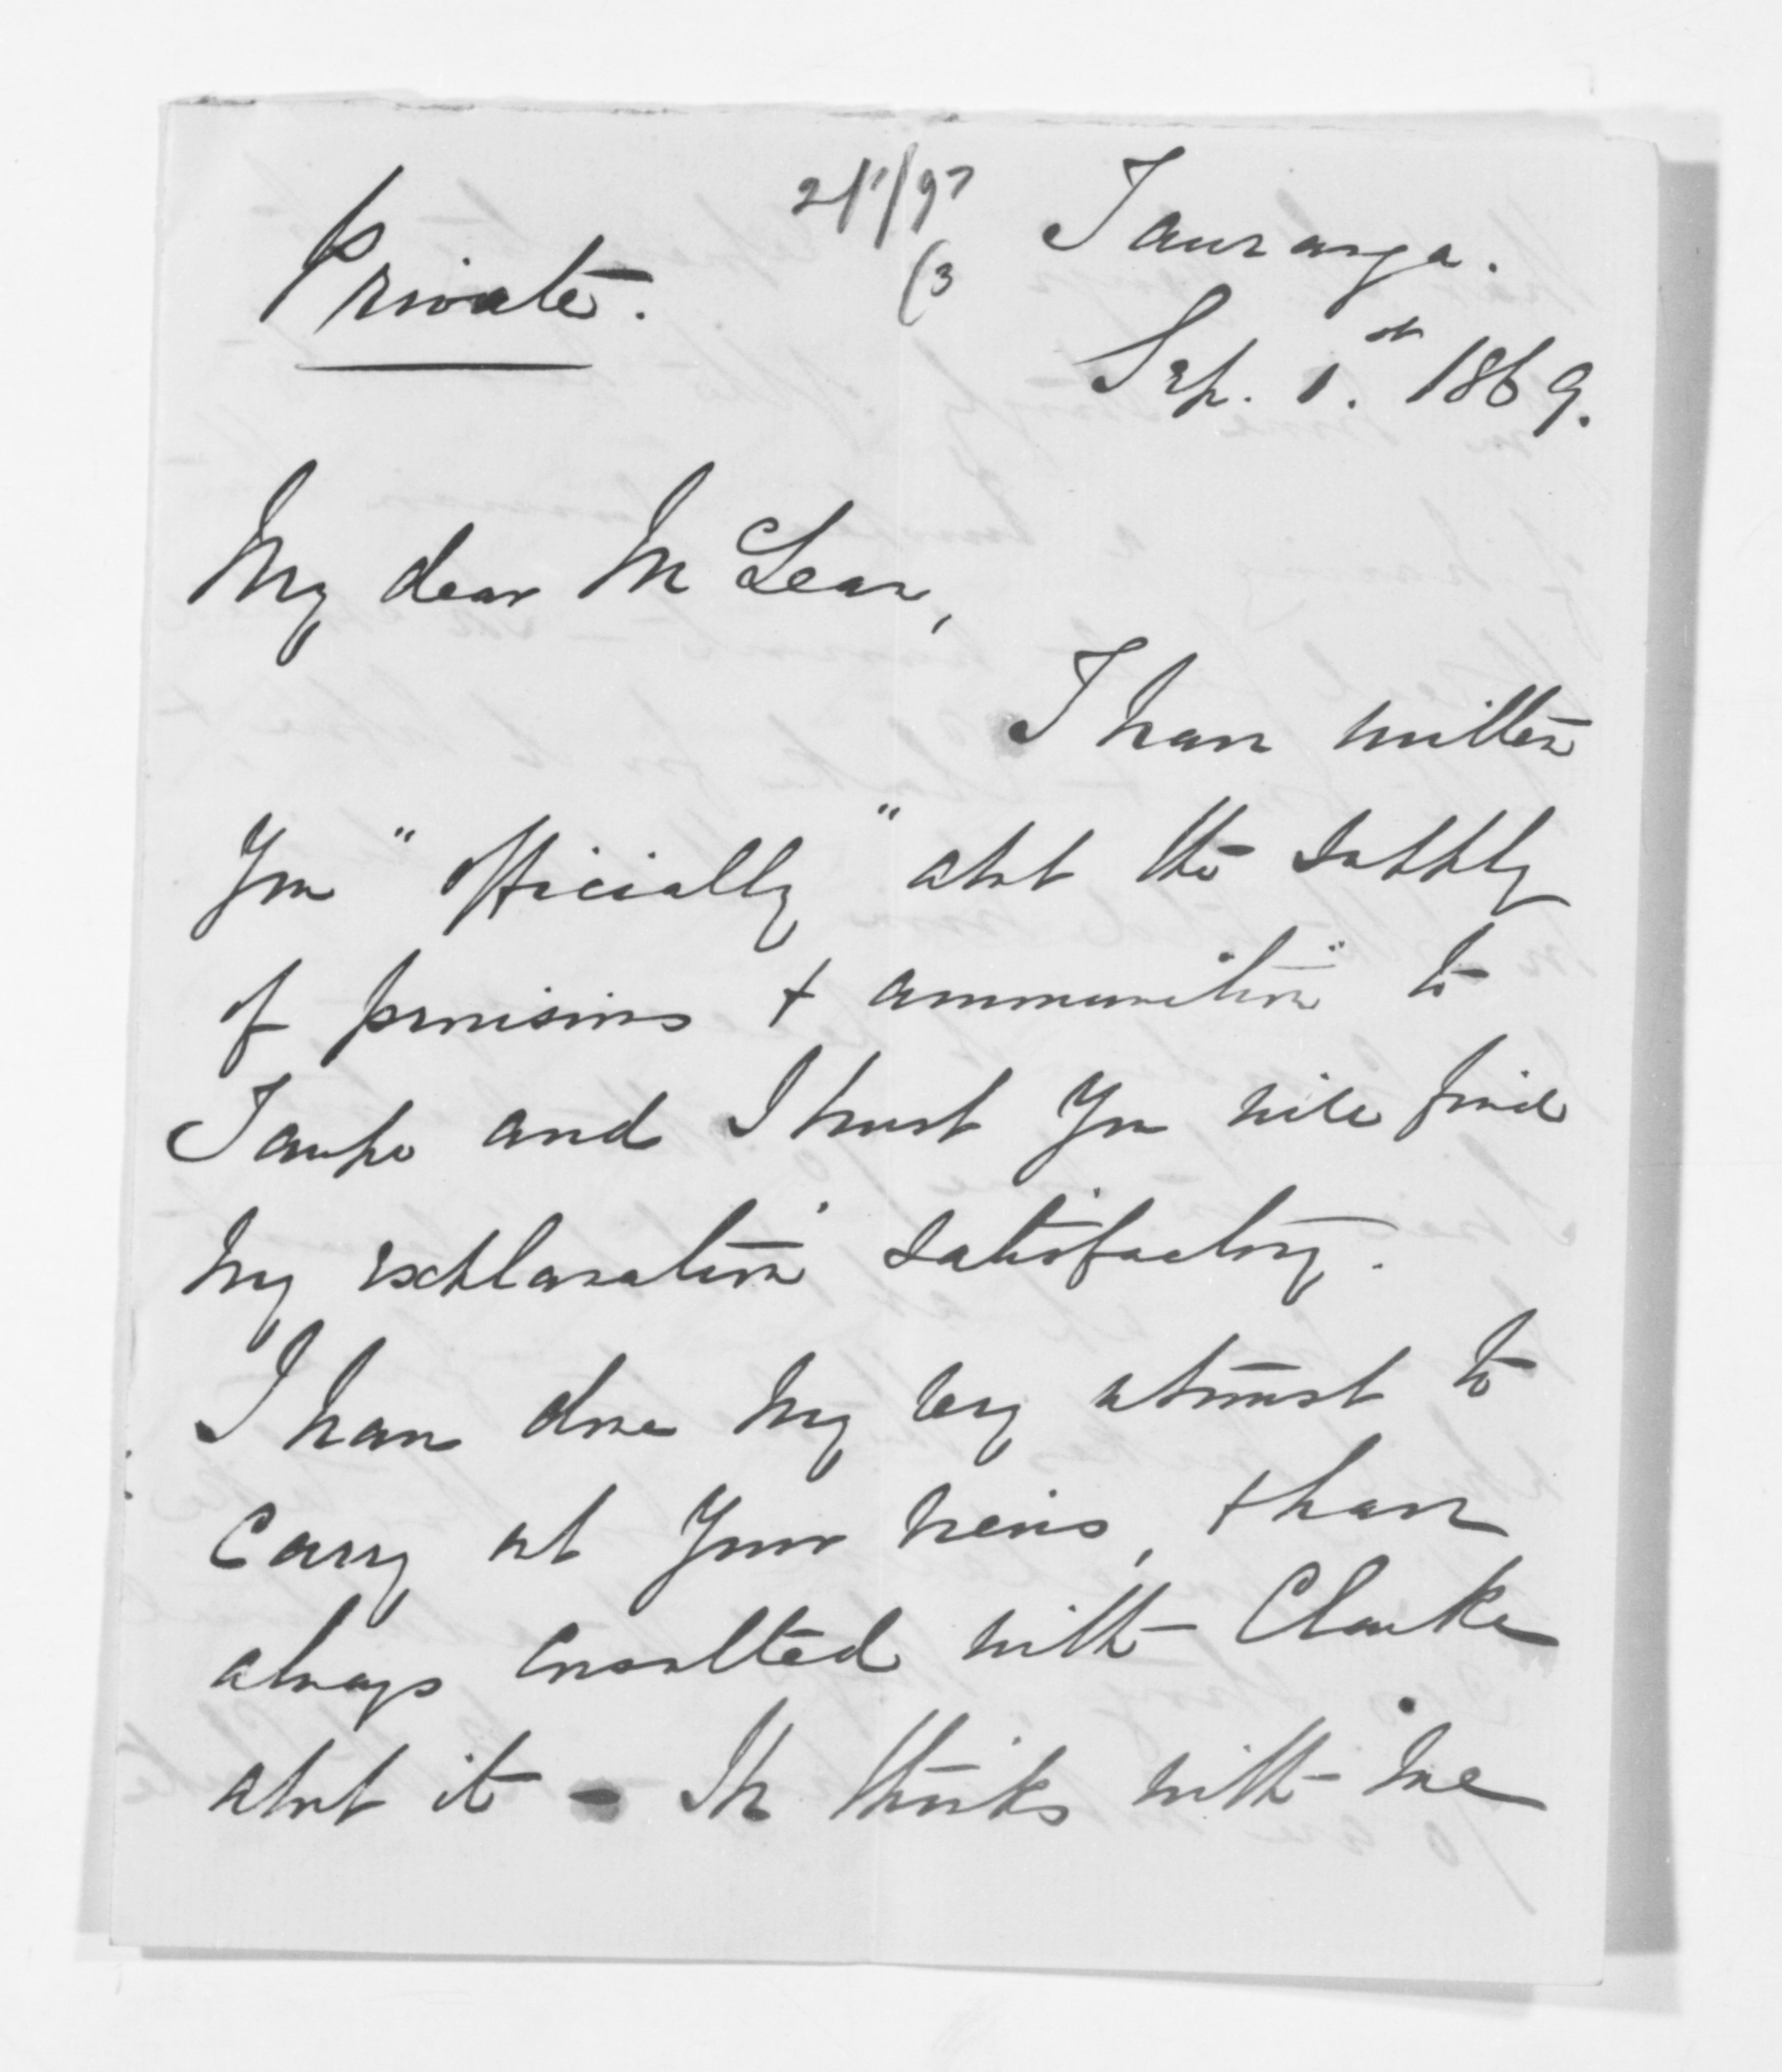 Private.
21/1/97
(3
Tauranga.
Sep. 1.st 1869.
My dear McLean,
I have written
you "officially" abt the supply
of provisions & ammunition to
Taupo and I trust you will find
my explanation satisfactory.
I have done my very utmost to
carry out your views, & have
always consulted with Clarke
about it - He thinks with me